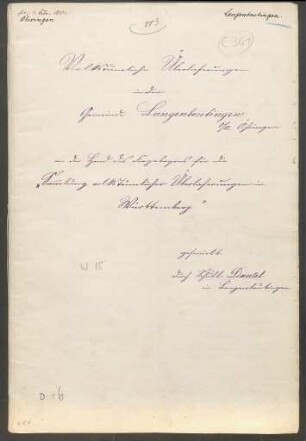 Öhringen
113
Langenbeutingen.
Volkstümliche Überlieferungen
in der
Gemeinde Langenbeutingen
O/A Öhringen
an der Hand des Fragebogens für die
„Sammlung volkstümlicher Überlieferungen in
Württemberg"
gesammelt
durch Schull.
in Langenbeutingen
W 15